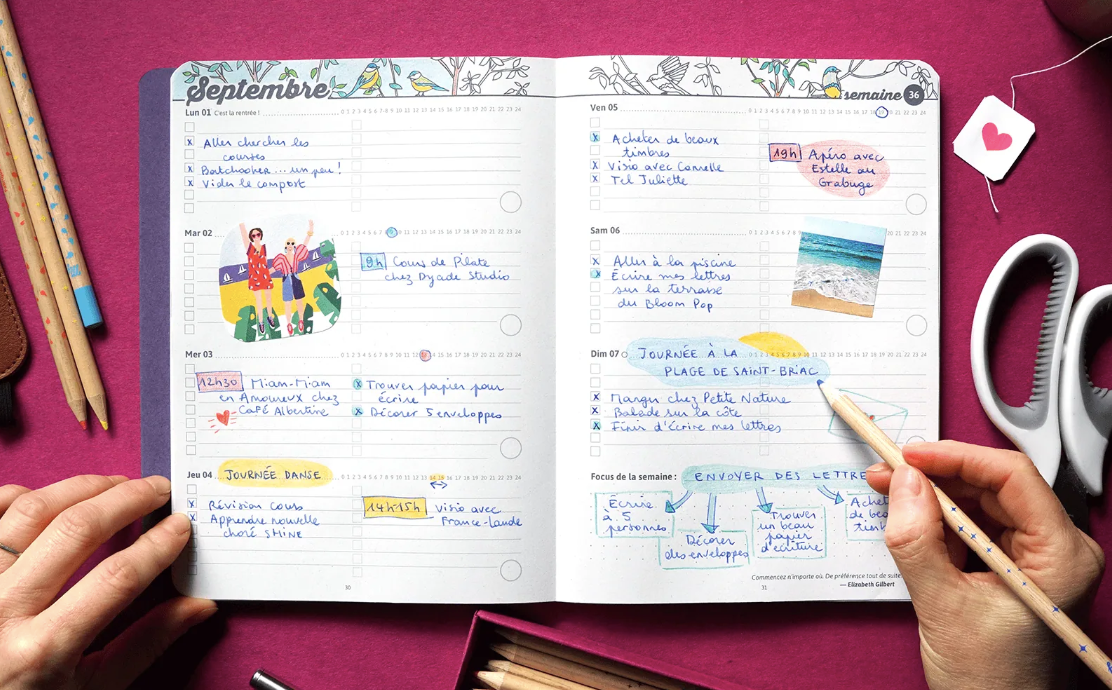 Septembre
Lun 01 C'est la rentrée !
0 1 2 3 4 5 6 7 8 9 10 11 12 13 14 15 16 17 18 19 20 21 22 23 24
x Aller chercher les
courses
x Batchcooker ... un peu !
x Vider le compost
Mar 02
9h Cours de Pilate
chez Dyade Studio
Mer 03
0 1 2 3 4 5 6 7 8 9 10 11 12 13 14 15 16 17 18 19 20 21 22 23 24
12h30 Miam-Miam
en Amoureux chez
Café Albertine
x Trouver papier pour
écrire
x Décorer 5 enveloppes
Jeu 04 JOURNÉE DANSE
0 1 2 3 4 5 6 7 8 9 10 11 12 13 14 15 16 17 18 19 20 21 22 23 24
x Révision cours
x Apprendre nouvelle
choré SMINE
14h-15h visio avec
France-laude
30
semaine 36
Ven 05
x Acheter de beaux
timbres
x Visio avec Cannelle
x Tel Juliette
19h Apéro avec
Estelle au
Grabuge
Sam 06
x Aller à la piscine
x Écrire mes lettres
sur la terrasse
du Bloom Pop
Dim 07 JOURNÉE À LA
PLAGE DE SAINT-BRIAC
x Manger chez Petite Nature
x Balade sur la côte
x Finir d'écrire mes lettres
Focus de la semaine : ENVOYER DES LETTRE
Écrire
à 5
personnes
Décorer
des enveloppes
Trouver
un beau
papier
d'écriture
Achet
de bea
timb
Commencez n'importe où. De préférence tout de suite
— Elizabeth Gilbert
31